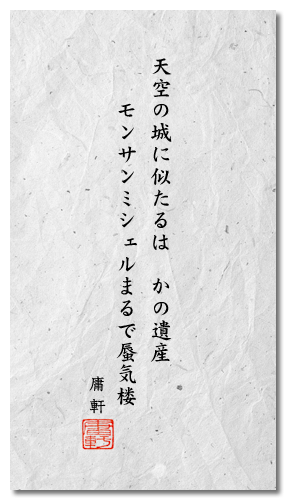 天空の城に似たるは　かの遺産
モンサンミシェルまるで蜃気楼
庸軒
庸軒